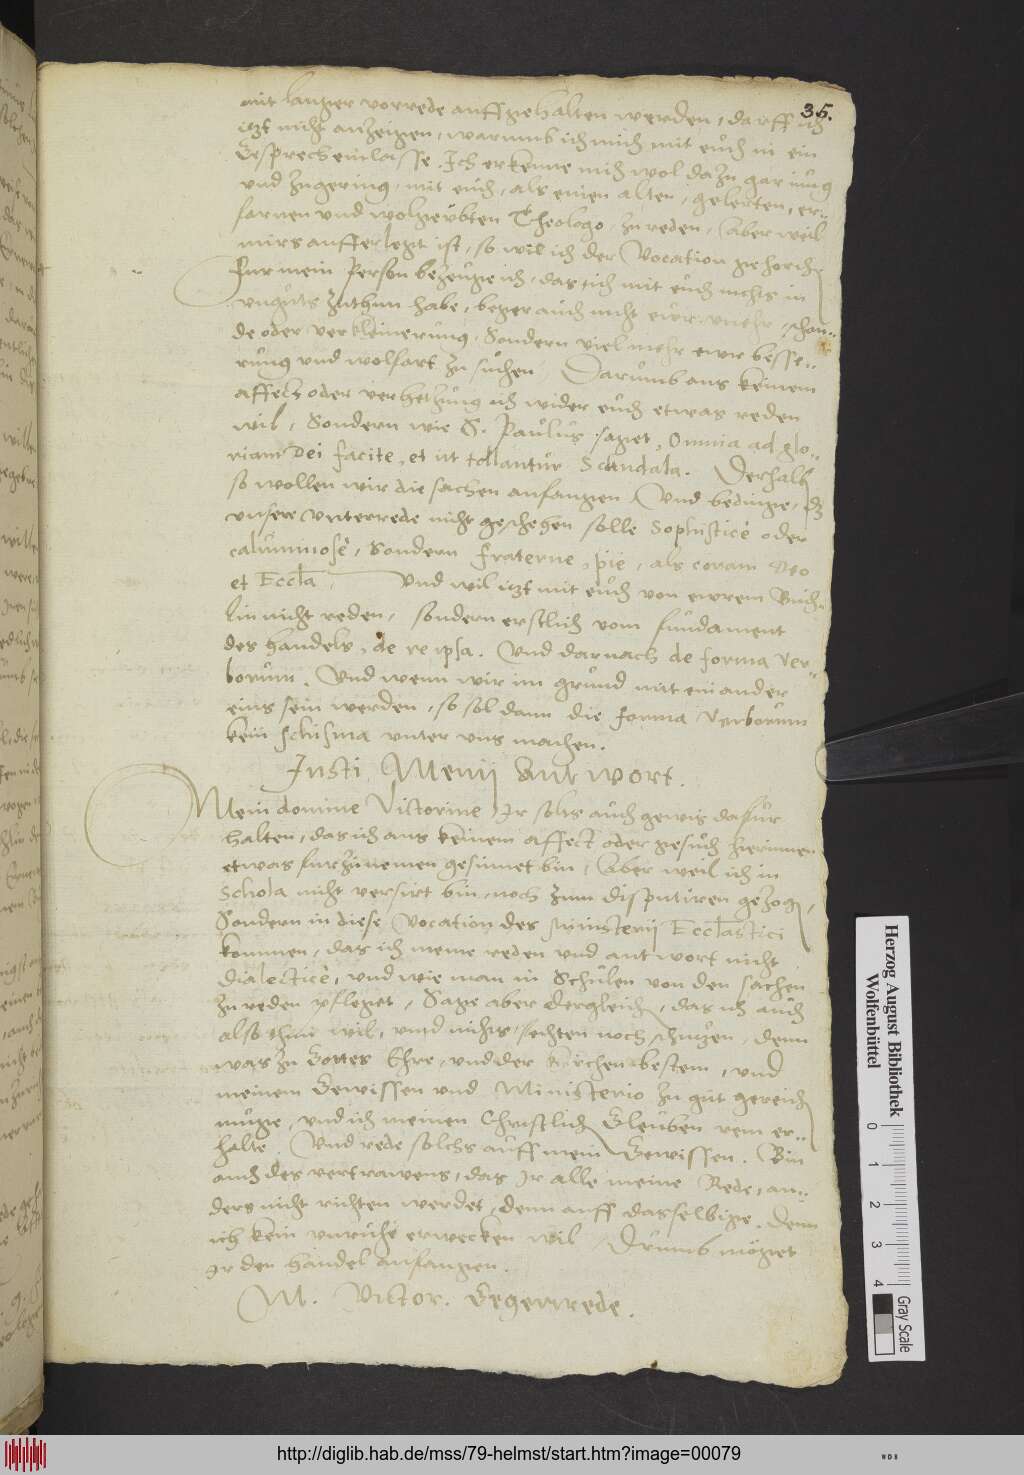 35.
mit langer vorrede auffgehalten werden, darff ich
itzt nicht anzeigen, warumb ich mich mit euch in ein
Gesprech einlasse. Ich erkenne mich wol dazu gar iung
und zu gering, mit euch, als einen alten, gelerten, er-
farnen und wolgeübten Theologo, zu reden, Aber weil
mirs aufferlegt ist, so wil ich der Vocation gehorchen
Fur mein Person bezeuge ich, das ich mit euch nichts in
unguts zuthun habe, beger auch nicht eur unehr, schan-
de oder verkleinerung, Sondern viel mehr ewr besse-
rung und wolfart zu suchen, Darumb aus keinem
affect oder verhetzung ich wider euch etwas reden
wil, Sondern wie S. Paulus saget, Omnia ad glo-
riam Dei facite, et ut tollantur Scandala. Derhalb
so wollen wir die sachen anfangen, Und bedinge, dz
unsere Unterrede nicht geschehen solle Sophisticè oder
caluminosè, Sondern fraterne, pië, als coram Deo
et Eccla. Und wil itzt mit euch von ewrem Buch-
lin nicht reden, sondern erstlich vom fundament
des handels, de re ipsa. Und darnach de forma ver-
borum. Und wenn wir im grund mit einander
eins sein werden, so sol dann die forma verborum
kein schisma unter uns machen.
Justi Menij Antwort.
Mein domine Victorine, Ir solts auch gewis dafur
halten, das ich aus keinem affect oder gesuch hierinnen
etwas furzunemen gesinnet bin, Aber weil ich in
Schola nicht versirt bin, noch zum disputiren gezogen,
Sondern in diese Vocation des Ministerij Ecclastici
kommen, das ich meine reden und antwort nicht
dialecticè, und wie man in Schulen von den sachen
zu reden pfleget, Sage aber dergleichen, das ich auch
also thun wil, und nichts fechten noch schutzen, denn
was zu Gottes Ehre, und der Kirchen bestem, und
meinem Gewissen und Ministerio zu gut gereichen
muge, und ich meinen Christlichen Gleuben rein er-
halte. Und rede solchs auff mein Gewissen. Bin
auch des vertrawens, das Ir alle meine Rede, an-
ders nicht richten werdet, denn auff dasselbige. Denn
ich kein unruhe erwecken wil, Drumb möget
Ir den handel anfangen.
M. Victor. Gegenrede.
Herzog August Bibliothek
Wolfenbüttel
0 1 2 3 4
Gray Scale
http://diglib.hab.de/mss/79-helmst/start.htm?image=00079